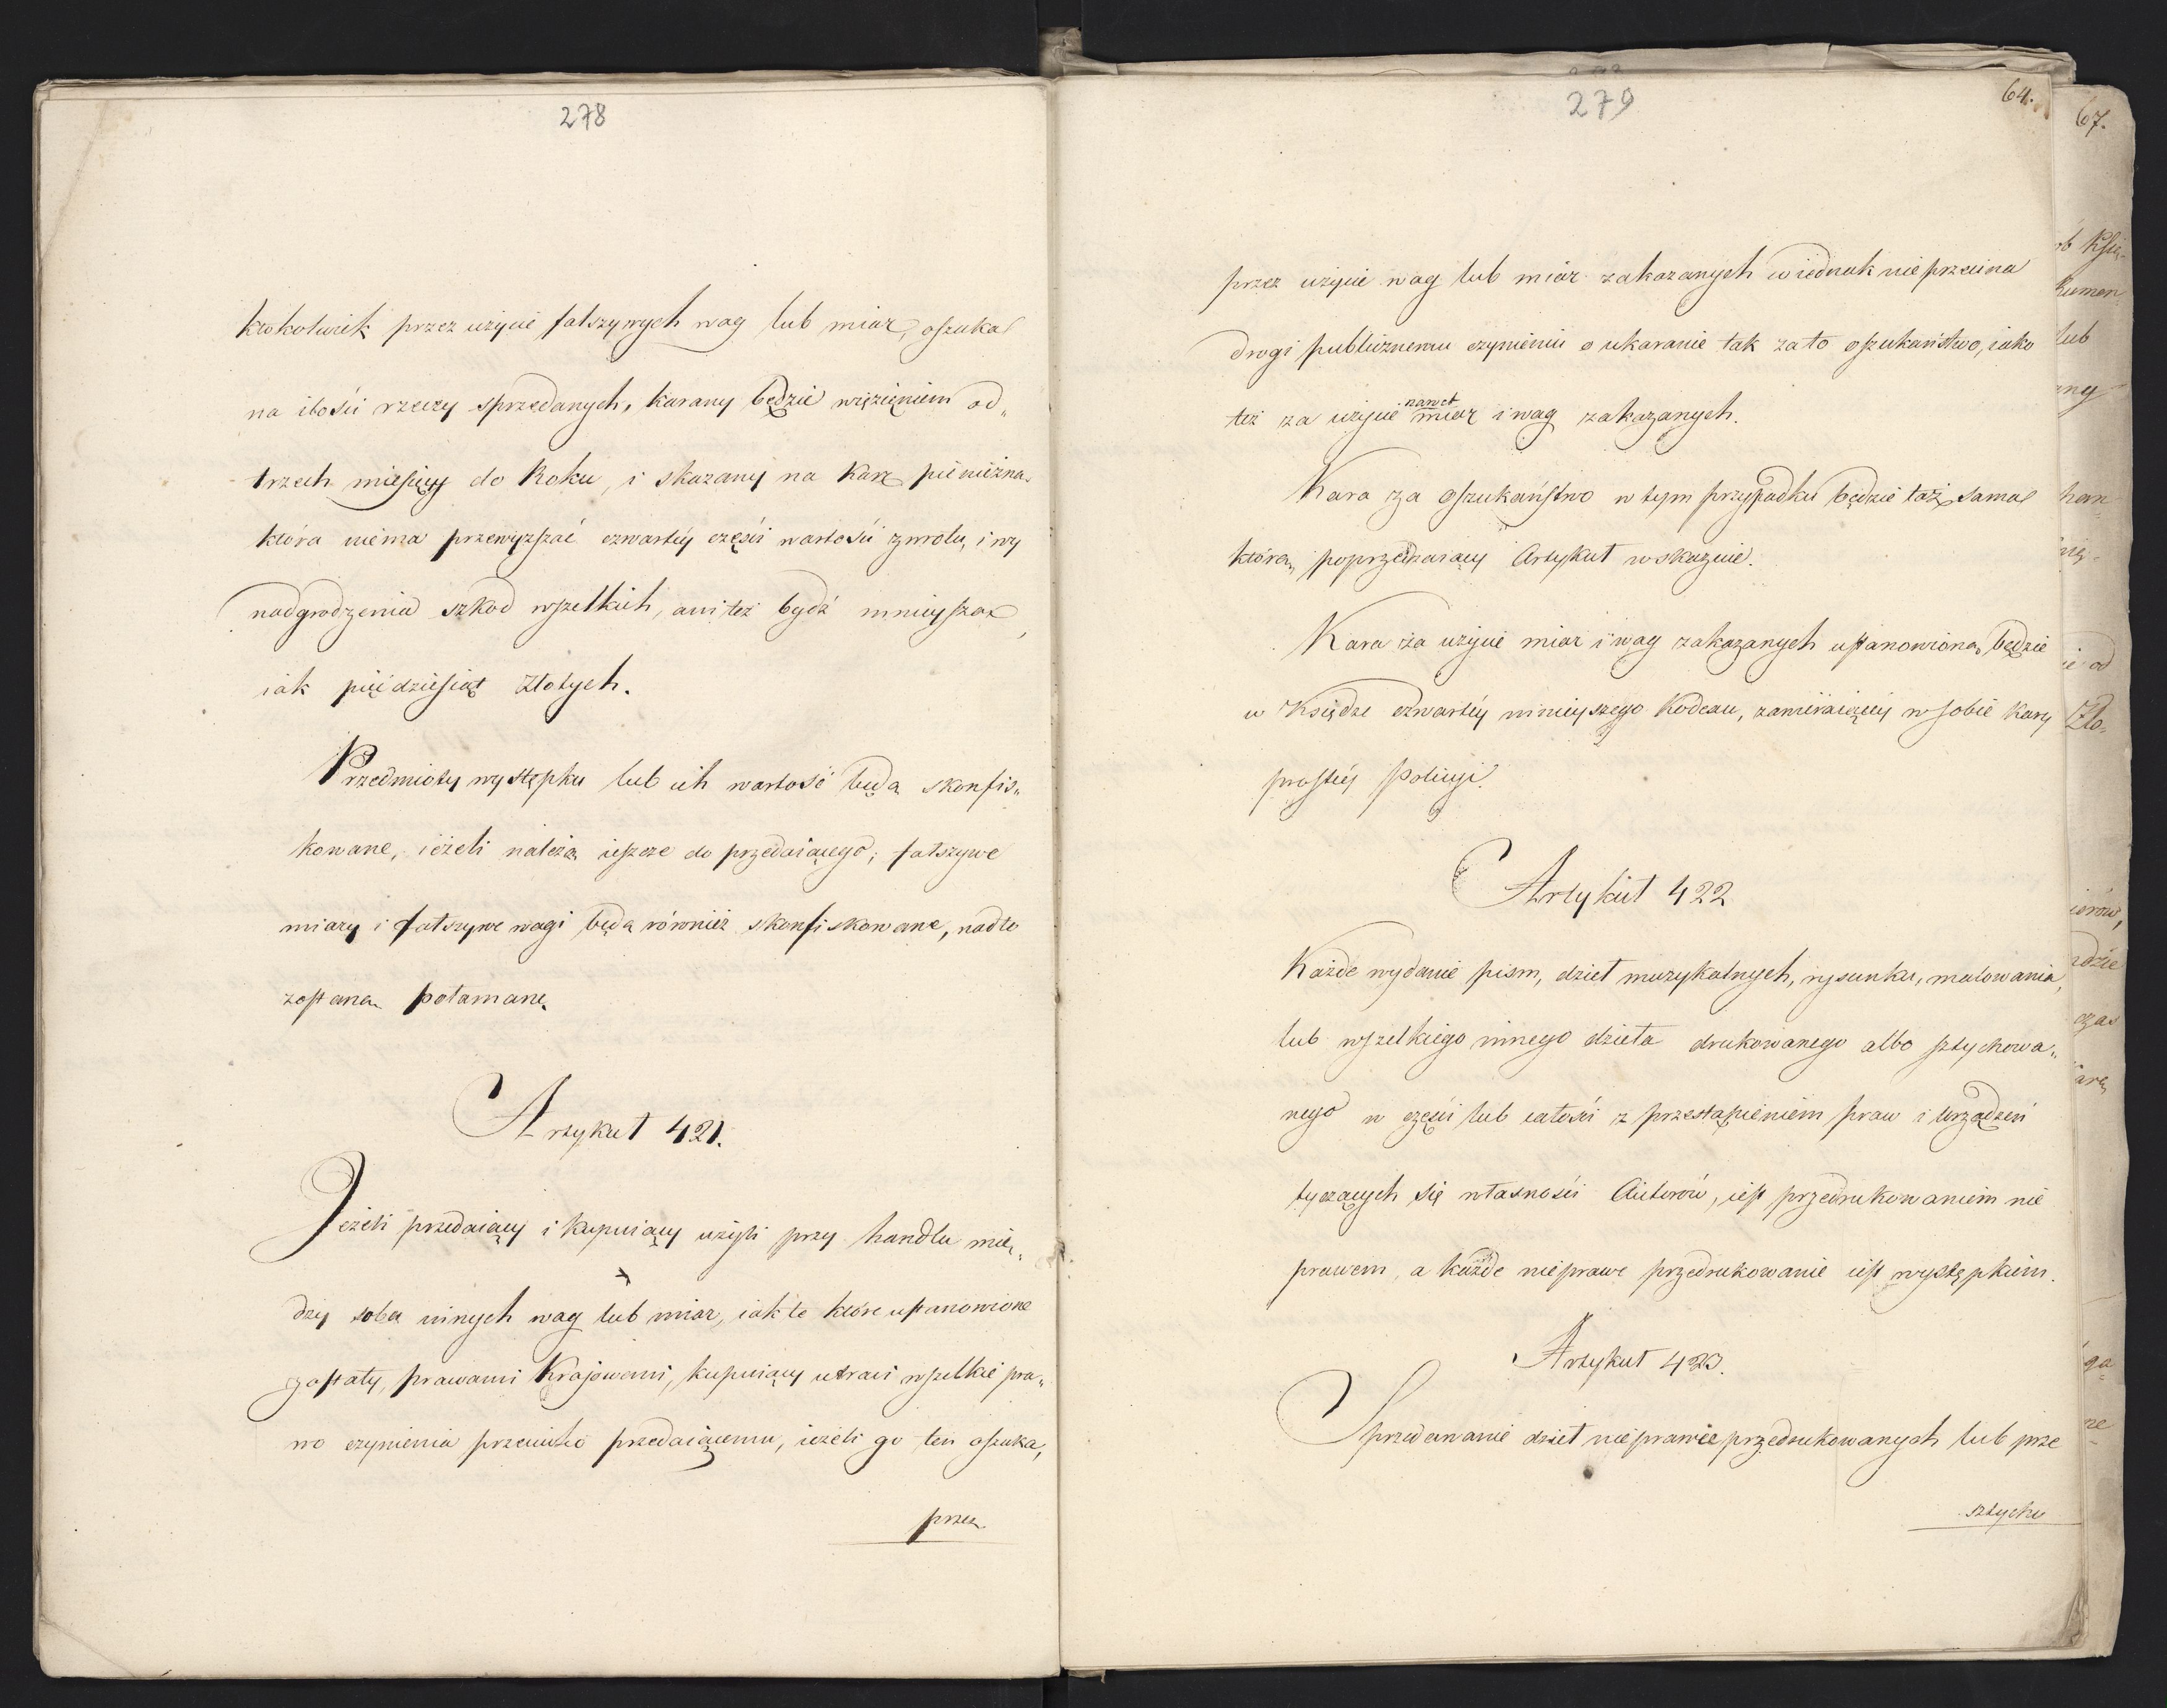 278
ktokolwiek przez użycie fałszywych wag lub miar, oszukał
na ilości rzeczy sprzedanych, karany będzie więzieniem od„
trzech miesięcy do Roku, i skazany na karę pieniężną
która niema przewyższać czwartéy części wartości zwrotu, i wy
nadgrodzenia szkod wszelkich, ani też bydź mnieysza
iak pięćdziesiąt Złotych.
Przedmioty występku lub ich wartość będą skonfis„
kowane, ieżeli należą ieszcze do przedaiącego; fałszywe
miary i fałszywe wagi będą również skonfiskowane, nadto
zostaną połamane.
Artykuł 421.
Jeżeli przedaiący i kupuiący użyli przy handlu mię„
dzy sobą innych wag lub miar, iak te które ustanowione
zostały, prawami Krajowemi, kupuiący utraci wszelkie pra„
wo czynienia przeciwko przedaiącemu, ieżeli go ten oszuka,
przez
279
64.
przez użycie wag lub miar zakazanych wiednak nie przecina
drogi publicznemu czynieniu o ukaranie tak za to oszukaństwo, iako
też za użycie nawet miar i wag zakazanych.
Kara za oszukaństwo w tym przypadku będzie taż sama
którą poprzedzaiący Artykuł wskazuie.
Kara za użycie miar i wag zakazanych ustanowioną będzie
w Księdze czwartéy ninieyszego Kodexu, zawieraiącéy w sobie kary
prostéy Policyi.
Artykuł 422
Każde wydanie pism, dzieł muzykalnych, rysunku, malowania,
lub wszelkiego innego dzieła drukowanego albo sztychowa„
nego w części lub całości z przestąpieniem praw i urządzeń
tyczących się własności Autorów, iest przedrukowaniem nie
prawem, a każde nieprawe przedrukowanie iest występkiem.
Artykuł 423.
Sprzedawanie dzieł nieprawie przedrukowanych lub prze
sztycho
67.